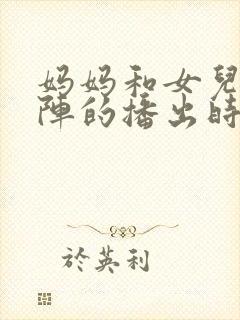 妈妈和女兒
陣的播出時
於英利